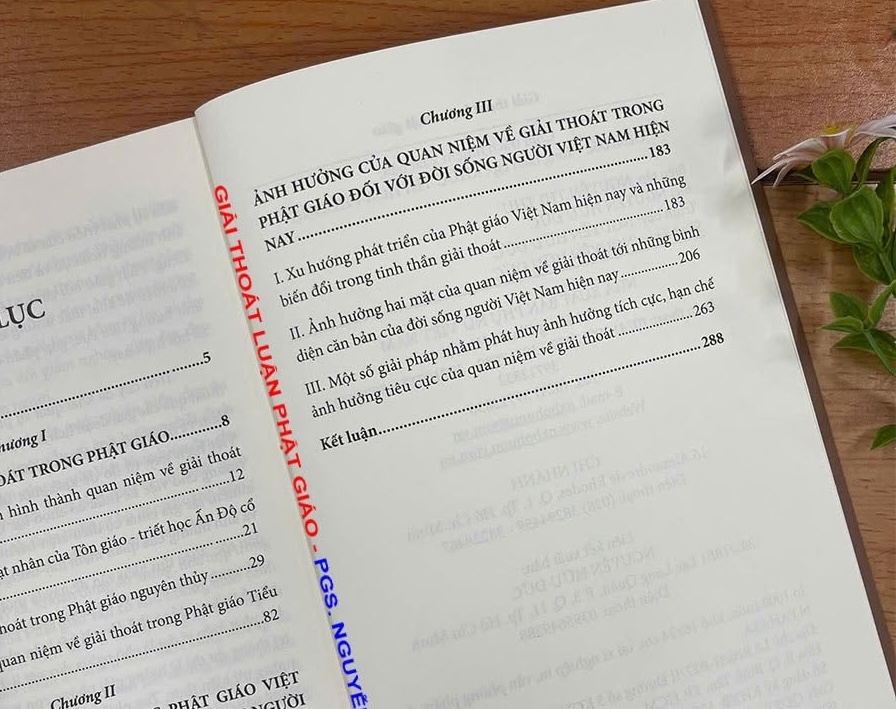 LỤC
5
Chương I
THOÁT TRONG PHẬT GIÁO..........8
hình thành quan niệm về giải thoát
12
nhân của Tôn giáo - triết học Ấn Độ cổ
21
thoát trong Phật giáo nguyên thủy .........29
quan niệm về giải thoát trong Phật giáo Tiểu
82
Chương II
PHẬT GIÁO VIỆT
NGƯỜI
GIẢI THOÁT LUẬN PHẬT GIÁO - PGS. NGUYỄ
Chương III
ẢNH HƯỞNG CỦA QUAN NIỆM VỀ GIẢI THOÁT TRONG
PHẬT GIÁO ĐỐI VỚI ĐỜI SỐNG NGƯỜI VIỆT NAM HIỆN
NAY ..........183
I. Xu hướng phát triển của Phật giáo Việt Nam hiện nay và những
biến đổi trong tinh thần giải thoát ..........183
II. Ảnh hưởng hai mặt của quan niệm về giải thoát tới những bình
diện căn bản của đời sống người Việt Nam hiện nay ..........206
III. Một số giải pháp nhằm phát huy ảnh hưởng tích cực, hạn chế
ảnh hưởng tiêu cực của quan niệm về giải thoát ..........263
Kết luận..........288